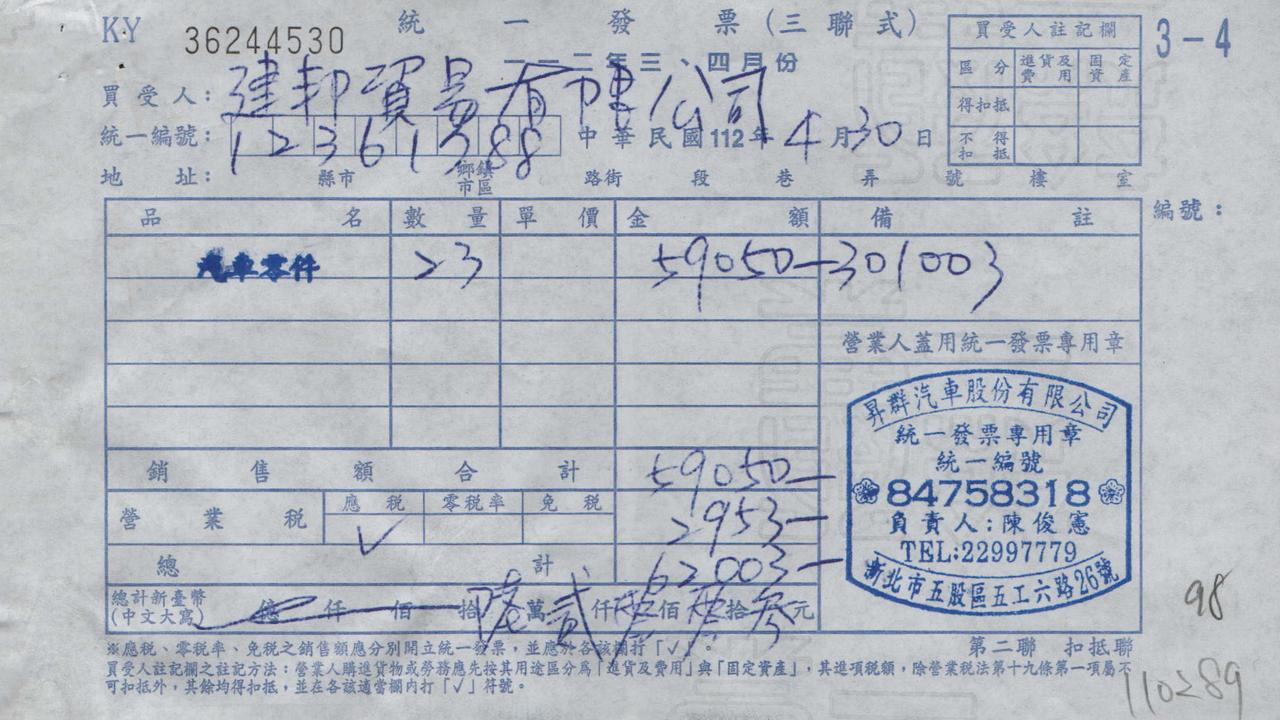 KY 36244530
統一發票(三聯式)
一一二年三、四月份
3-4
買受人註記欄
區分 進貨及費用 固定資產
得扣抵
不得扣抵
買受人:建邦貿易有限公司
統一編號:12361388
中華民國112年4月30日
地址: 縣市 鄉鎮市區 路街 段 巷 弄 號 樓 室
編號:
品名 數量 單價 金額 備註
汽車零件 23 59050- 301003
營業人蓋用統一發票專用章
昇群汽車股份有限公司
統一發票專用章
統一編號
84758318
負責人:陳俊憲
TEL:22997779
新北市五股區五工六路26號
銷售額合計 59050-
營業稅 應稅 零稅率 免稅
✓ 2953-
總計 62003-
總計新臺幣(中文大寫) 億 仟 佰 拾 陸萬 貳仟 零佰 零拾 參元
※應稅、零稅率、免稅之銷售額應分別開立統一發票,並應於各該欄打「✓」。
第二聯 扣抵聯
買受人註記欄之註記方法:營業人購進貨物或勞務應先按其用途區分為「進貨及費用」與「固定資產」,其進項稅額,除營業稅法第十九條第一項屬不
可扣抵外,其餘均得扣抵,並在各該適當欄內打「✓」符號。
98
110289